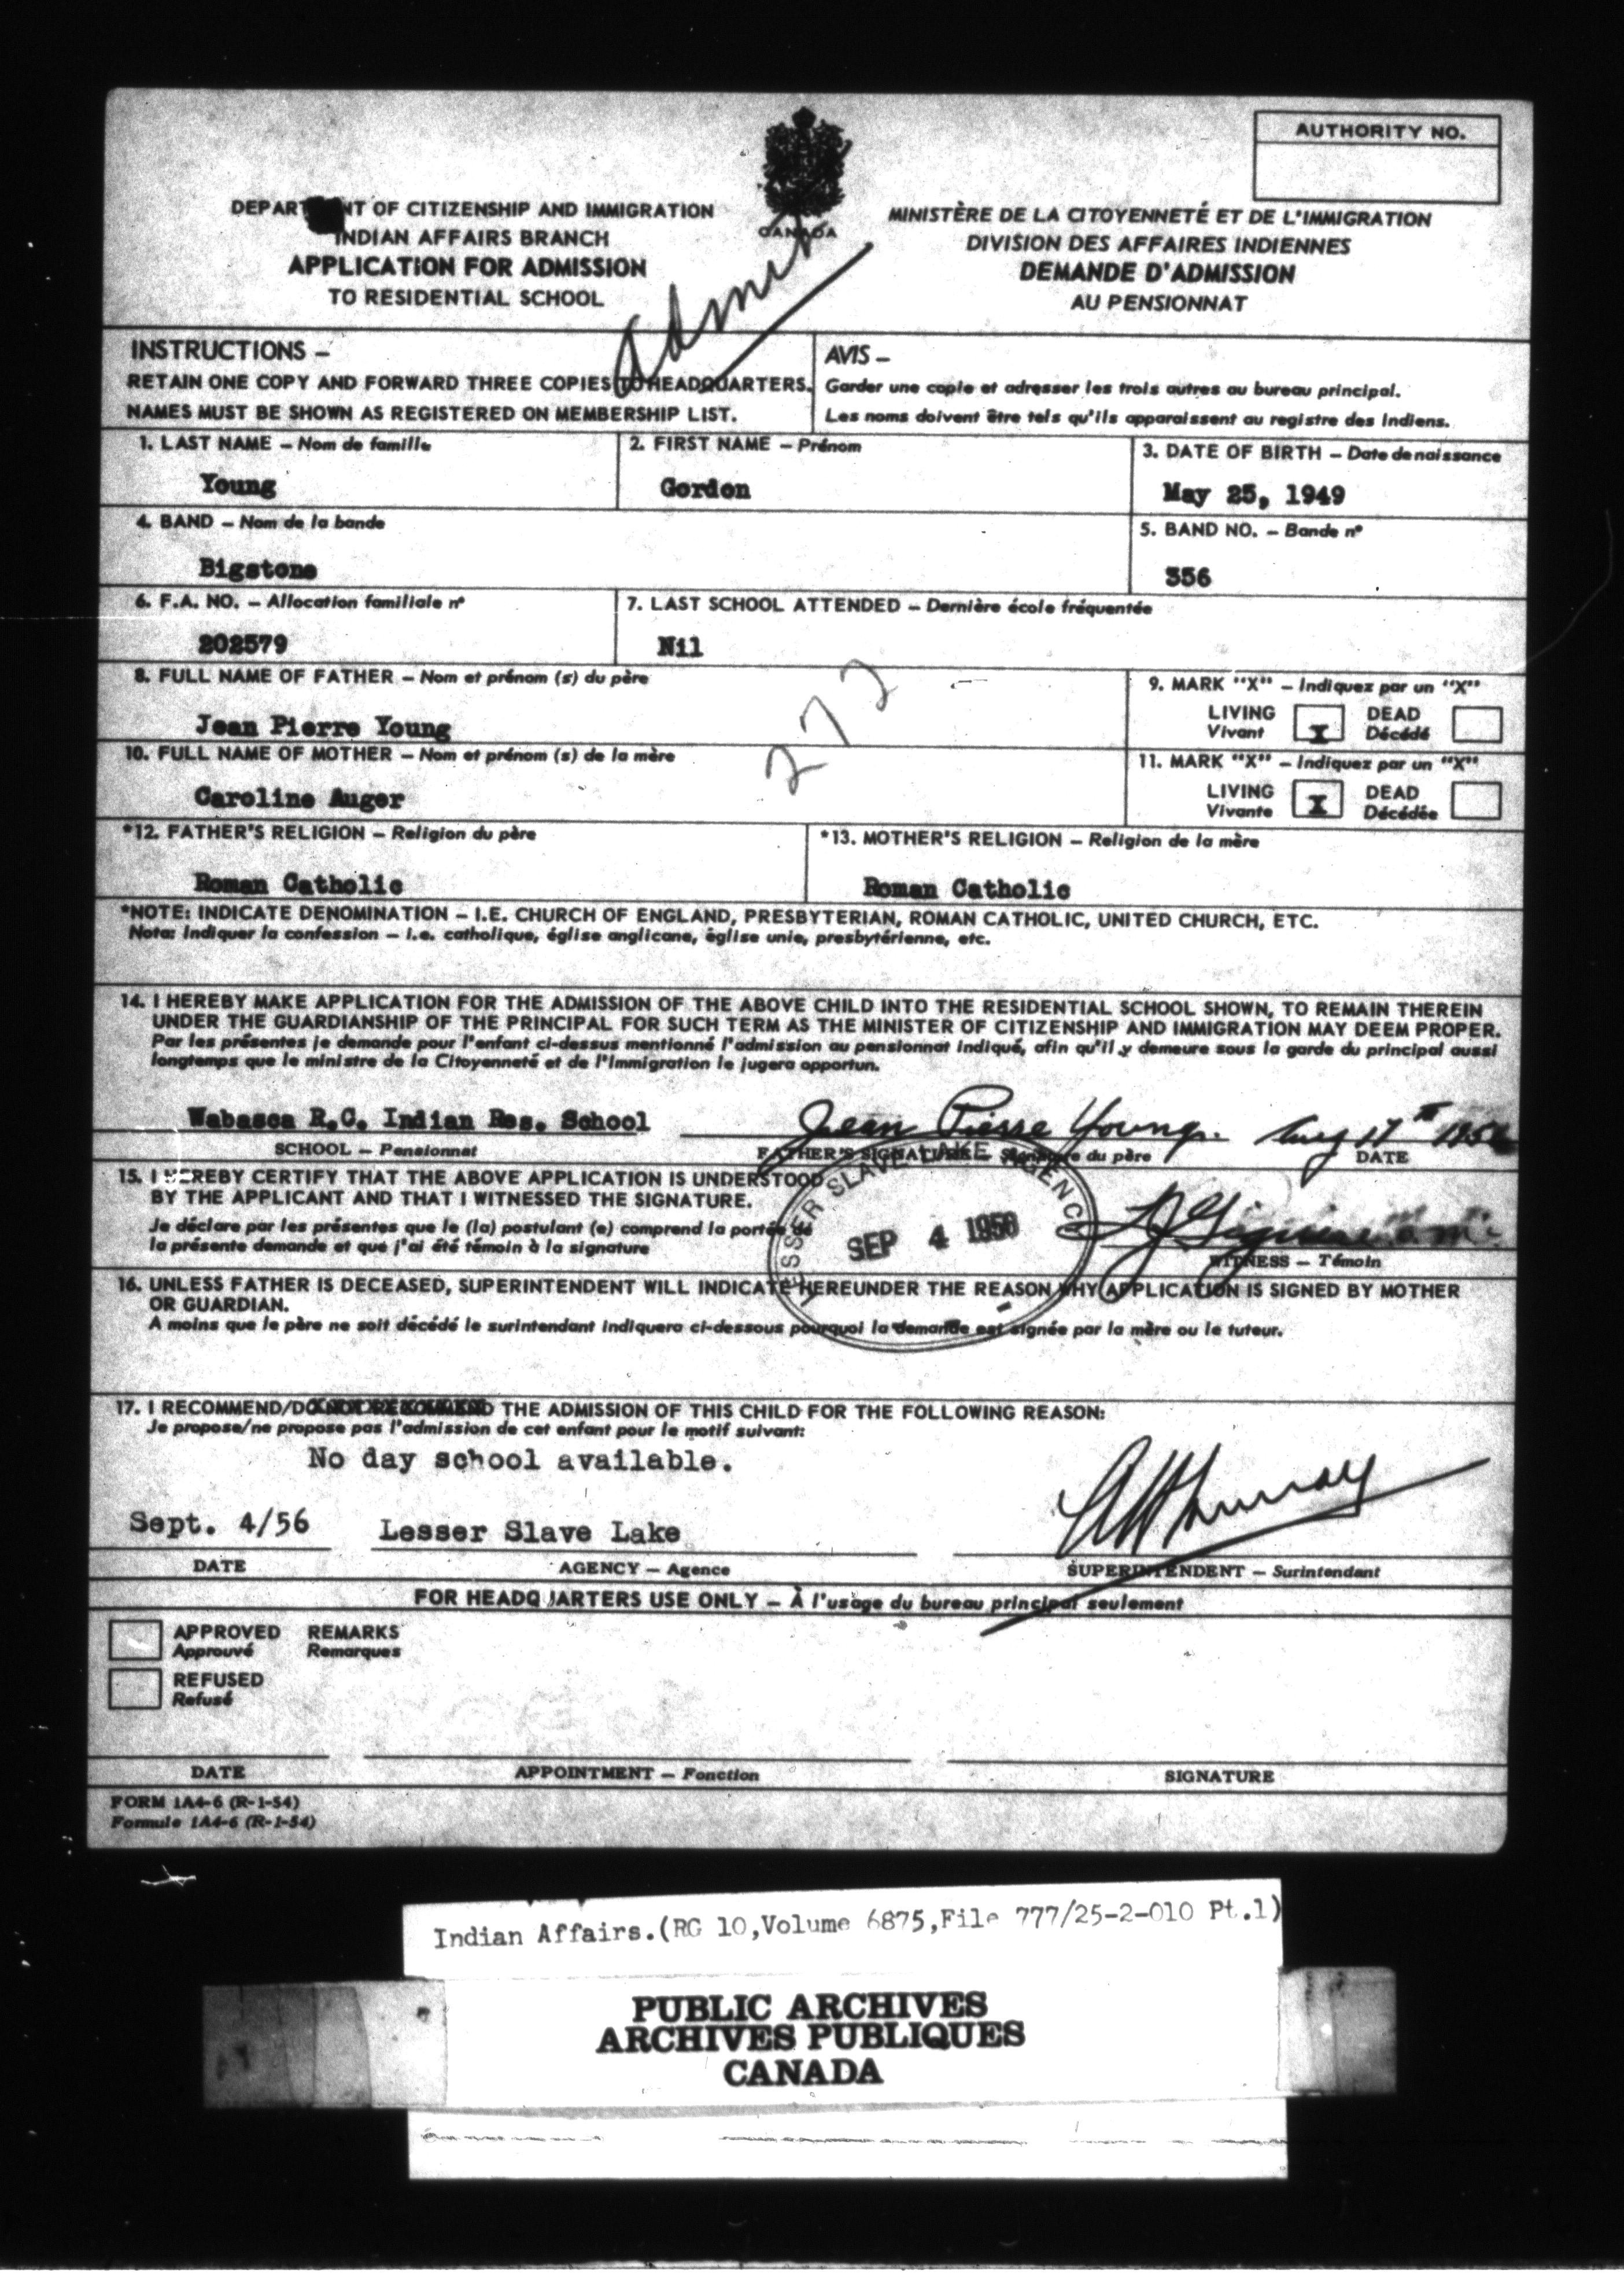 AUTHORITY NO.
CANADA
DEPARTMENT OF CITIZENSHIP AND IMMIGRATION
INDIAN AFFAIRS BRANCH
APPLICATION FOR ADMISSION
TO RESIDENTIAL SCHOOL
MINISTÈRE DE LA CITOYENNETÉ ET DE L'IMMIGRATION
DIVISION DES AFFAIRES INDIENNES
DEMANDE D'ADMISSION
AU PENSIONNAT
Admit
INSTRUCTIONS –
RETAIN ONE COPY AND FORWARD THREE COPIES TO HEADQUARTERS.
NAMES MUST BE SHOWN AS REGISTERED ON MEMBERSHIP LIST.
AVIS –
Garder une copie et adresser les trois autres au bureau principal.
Les noms doivent être tels qu'ils apparaissent au registre des Indiens.
1. LAST NAME – Nom de famille
Young
2. FIRST NAME – Prénom
Gordon
3. DATE OF BIRTH – Date de naissance
May 25, 1949
4. BAND – Nom de la bande
Bigstone
5. BAND NO. – Bande nº
356
6. F.A. NO. – Allocation familiale nº
202579
7. LAST SCHOOL ATTENDED – Dernière école fréquentée
Nil
8. FULL NAME OF FATHER – Nom et prénom (s) du père
Jean Pierre Young
272
9. MARK "X" – Indiquez par un "X"
LIVING X DEAD
Vivant Décédé
10. FULL NAME OF MOTHER – Nom et prénom (s) de la mère
Caroline Auger
11. MARK "X" – Indiquez par un "X"
LIVING X DEAD
Vivante Décédée
*12. FATHER'S RELIGION – Religion du père
Roman Catholic
*13. MOTHER'S RELIGION – Religion de la mère
Roman Catholic
*NOTE: INDICATE DENOMINATION – I.E. CHURCH OF ENGLAND, PRESBYTERIAN, ROMAN CATHOLIC, UNITED CHURCH, ETC.
Nota: Indiquer la confession – i.e. catholique, église anglicane, église unie, presbytérienne, etc.
14. I HEREBY MAKE APPLICATION FOR THE ADMISSION OF THE ABOVE CHILD INTO THE RESIDENTIAL SCHOOL SHOWN, TO REMAIN THEREIN
UNDER THE GUARDIANSHIP OF THE PRINCIPAL FOR SUCH TERM AS THE MINISTER OF CITIZENSHIP AND IMMIGRATION MAY DEEM PROPER.
Par les présentes je demande pour l'enfant ci-dessus mentionné l'admission au pensionnat indiqué, afin qu'il y demeure sous la garde du principal aussi
longtemps que le ministre de la Citoyenneté et de l'Immigration le jugera opportun.
Wabasca R.C. Indian Res. School Jean Pierre Young. Aug 17th 1956
SCHOOL – Pensionnat FATHER'S SIGNATURE – Signature du père DATE
15. I HEREBY CERTIFY THAT THE ABOVE APPLICATION IS UNDERSTOOD
BY THE APPLICANT AND THAT I WITNESSED THE SIGNATURE.
Je déclare par les présentes que le (la) postulant (e) comprend la portée de
la présente demande et que j'ai été témoin à la signature
LESSER SLAVE LAKE AGENCY
SEP 4 1956
WITNESS – Témoin
16. UNLESS FATHER IS DECEASED, SUPERINTENDENT WILL INDICATE HEREUNDER THE REASON WHY APPLICATION IS SIGNED BY MOTHER
OR GUARDIAN.
A moins que le père ne soit décédé le surintendant indiquera ci-dessous pourquoi la demande est signée par la mère ou le tuteur.
17. I RECOMMEND/DO NOT RECOMMEND THE ADMISSION OF THIS CHILD FOR THE FOLLOWING REASON:
Je propose/ne propose pas l'admission de cet enfant pour le motif suivant:
No day school available.
Sept. 4/56 Lesser Slave Lake
DATE AGENCY – Agence SUPERINTENDENT – Surintendant
FOR HEADQUARTERS USE ONLY – À l'usage du bureau principal seulement
APPROVED REMARKS
Approuvé Remarques
REFUSED
Refusé
DATE APPOINTMENT – Fonction SIGNATURE
FORM 1A4-6 (R-1-54)
Formule 1A4-6 (R-1-54)
Indian Affairs.(RG 10,Volume 6875,File 777/25-2-010 Pt.1)
PUBLIC ARCHIVES
ARCHIVES PUBLIQUES
CANADA